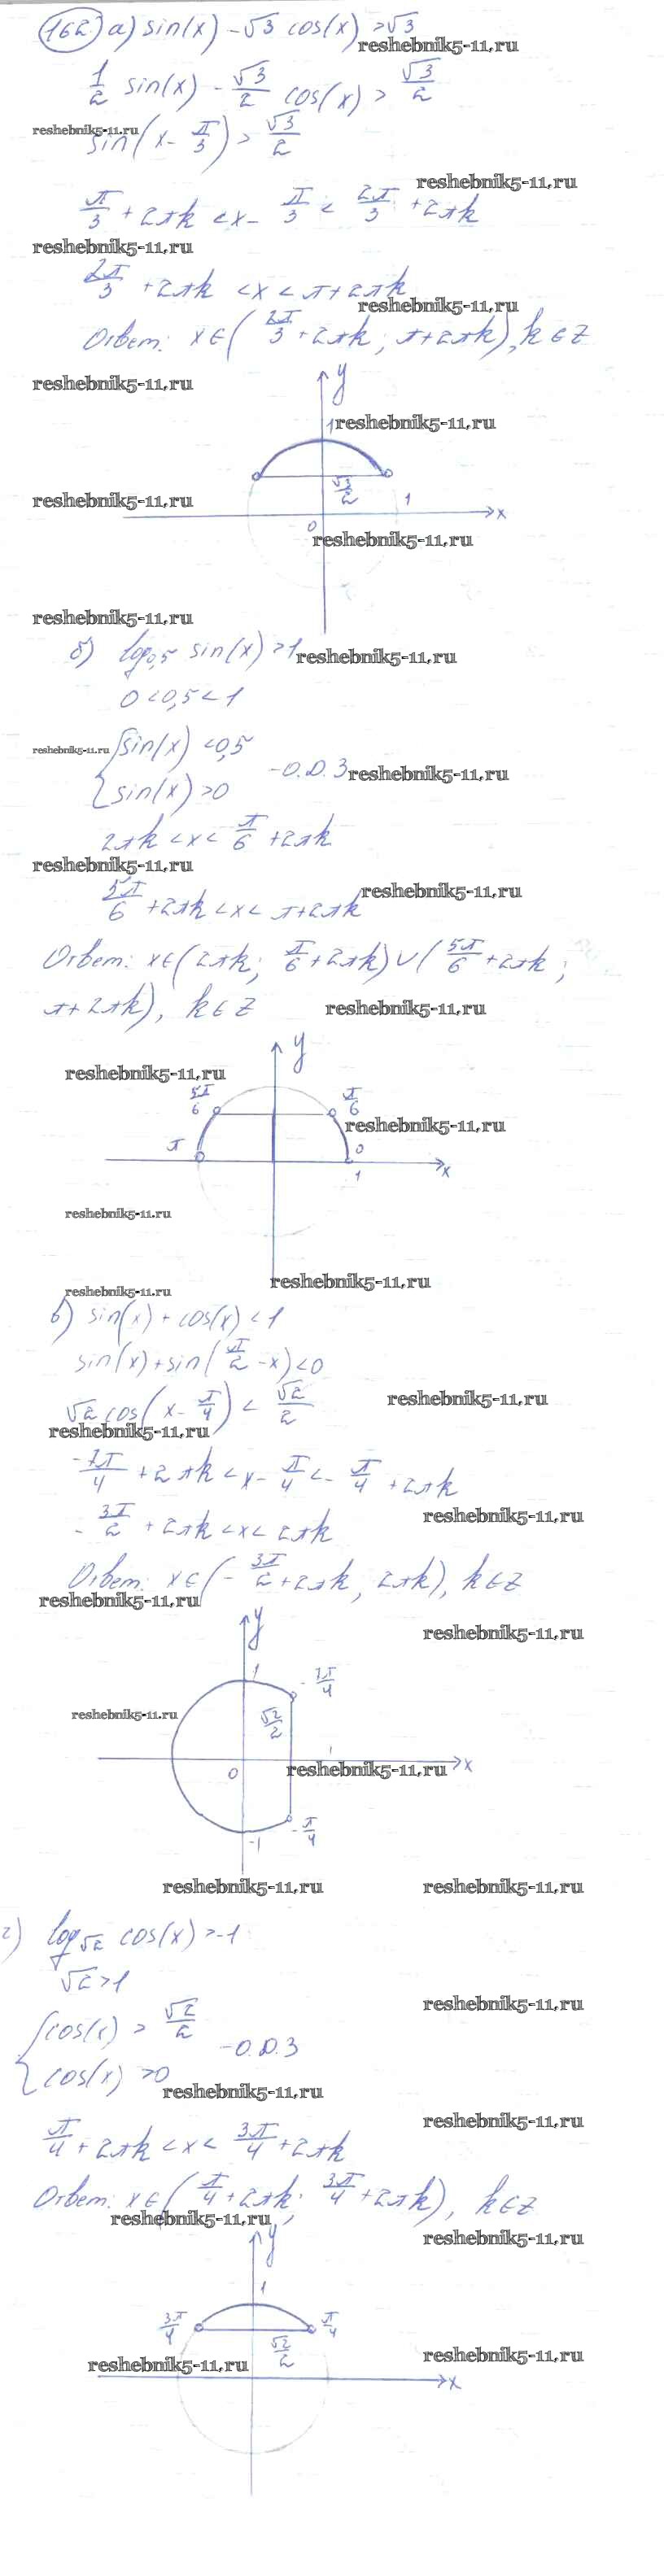 162 а) sin(x) - √3 cos(x) > √3
reshebnik5-11.ru
1/2 sin(x) - √3/2 cos(x) > √3/2
reshebnik5-11.ru
sin(x - π/3) > √3/2
reshebnik5-11.ru
π/3 + 2πk < x - π/3 < 2π/3 + 2πk
reshebnik5-11.ru
2π/3 + 2πk < x < π + 2πk
reshebnik5-11.ru
Ответ: x ∈ (2π/3 + 2πk; π + 2πk), k ∈ z
reshebnik5-11.ru
y
1
reshebnik5-11.ru
√3/2
1
reshebnik5-11.ru
0
x
reshebnik5-11.ru
reshebnik5-11.ru
б) log0,5 sin(x) > 1
reshebnik5-11.ru
0 < 0,5 < 1
reshebnik5-11.ru
{ sin(x) < 0,5
sin(x) > 0
- О.D.З
reshebnik5-11.ru
2πk < x < π/6 + 2πk
reshebnik5-11.ru
reshebnik5-11.ru
5π/6 + 2πk < x < π + 2πk
Ответ: x ∈ (2πk; π/6 + 2πk) ∪ (5π/6 + 2πk;
π + 2πk), k ∈ z
reshebnik5-11.ru
y
reshebnik5-11.ru
5π/6
π/6
reshebnik5-11.ru
π
0
1
x
reshebnik5-11.ru
reshebnik5-11.ru
reshebnik5-11.ru
в) sin(x) + cos(x) < 1
sin(x) + sin(π/2 - x) < 0
√2 cos(x - π/4) < √2/2
reshebnik5-11.ru
reshebnik5-11.ru
-7π/4 + 2πk < x - π/4 < - π/4 + 2πk
reshebnik5-11.ru
- 3π/2 + 2πk < x < 2πk
Ответ: x ∈ (- 3π/2 + 2πk, 2πk), k ∈ z
reshebnik5-11.ru
y
reshebnik5-11.ru
1
- 7π/4
reshebnik5-11.ru
√2/2
1
0
reshebnik5-11.ru
x
- π/4
-1
reshebnik5-11.ru
reshebnik5-11.ru
г) log√2 cos(x) > -1
√2 > 1
reshebnik5-11.ru
{ cos(x) > √2/2
cos(x) > 0
- О.D.З
reshebnik5-11.ru
reshebnik5-11.ru
π/4 + 2πk < x < 3π/4 + 2πk
Ответ: x ∈ (π/4 + 2πk; 3π/4 + 2πk), k ∈ z
reshebnik5-11.ru
reshebnik5-11.ru
y
1
3π/4
π/4
√2/2
reshebnik5-11.ru
reshebnik5-11.ru
x